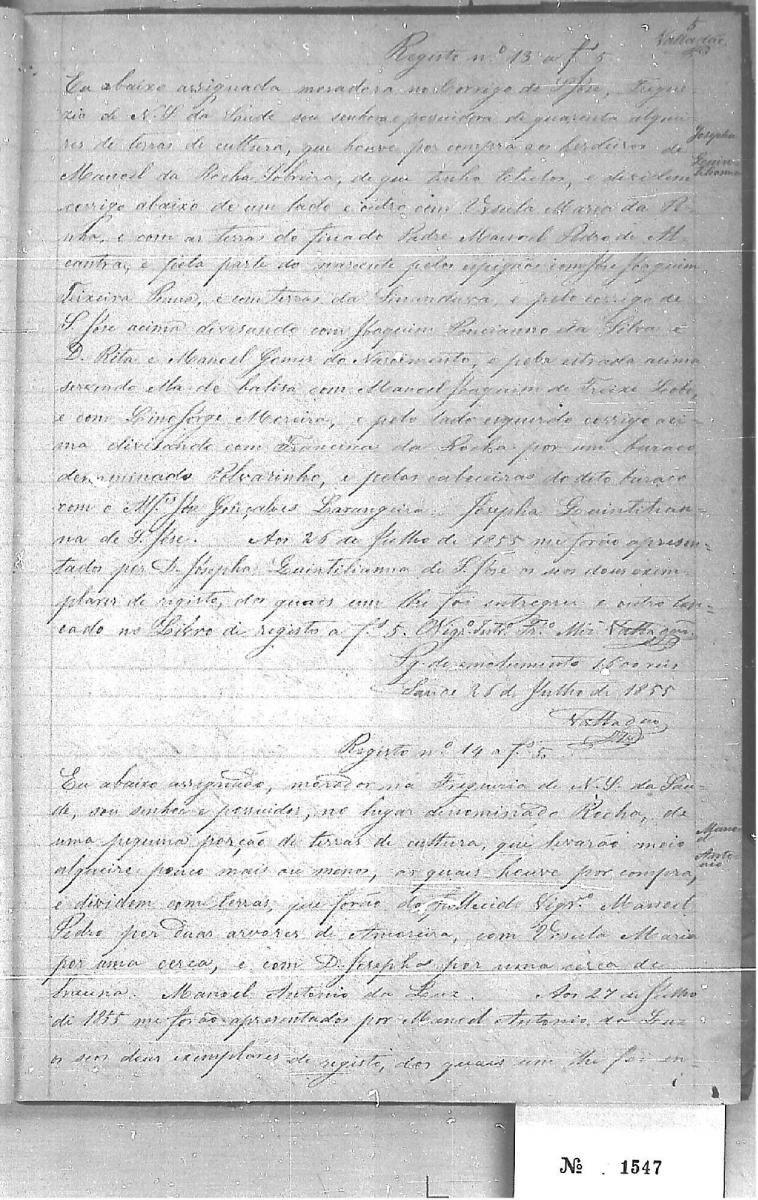 5
Valladão
Registo n.º 13 a f.s 5
Eu abaixo assignada moradora no Corrigo de S. José, Fregue-
zia de N. S. da Saude sou senhora e possuidora de quarenta alquei-
res de terras de cultura, que houve por compra aos herdeiros de
Manoel da Rocha, de que tenho titulos, e dividem
corrigo abaixo de um lado e outro com Ursula Maria da
e com as terras do finado Padre Manoel Pedro de
e pela parte do nascente pelos espigões com José Joaquim
Teixeira, e com terras da, e pelo corrigo de
S. José acima divisando com Joaquim da Silva e
D. Rita e Manoel Gomes do Nascimento, e pela estrada acima
servindo de baliza com Manoel Joaquim de,
e com Lino Jorge Moreira, e pelo lado esquerdo corrigo aci-
ma divisando com Francisca da Rocha por um buraco
denominado Polvarinho, e pelas cabeceiras do dito buraco
com o José Gonçalves Larangeira. Josepha Quintilian-
na de S. José. Aos 26 de Julho de 1855 me forão apresen-
tados por D. Josepha Quintilianna de S. José os seos dous exem-
plares de registo, dos quais um lhe foi entregue e outro lan-
cado no Libro de registo a f.s 5. O Vigr.º Valladão
Pg. de emolumento 1600 reis
Saude 26 de Julho de 1855
Valladão
Josepha
Quin-
tilianna
Registo n.º 14 a f.s 5
Eu abaixo assignado, morador na Freguezia de N. S. da Sau-
de, sou senhor e possuidor, no lugar denominado Rocha, de
uma pequena porção de terras de cultura, que levarão meio
alqueire pouco mais ou menos, as quais houve por compra,
e dividem com terras, que forão do fallecido Vigr.º Manoel
Pedro por duas arvores de Amoreira, com Ursula Maria
por uma cerca, e com D. Josepha por uma cerca de
Manoel Antonio da Luz. Aos 27 de Julho
de 1855 me forão apresentados por Manoel Antonio da Luz
os seos dous exemplares de registo, dos quais um lhe foi en-
Mano-
el
Anto-
nio
№ . 1547